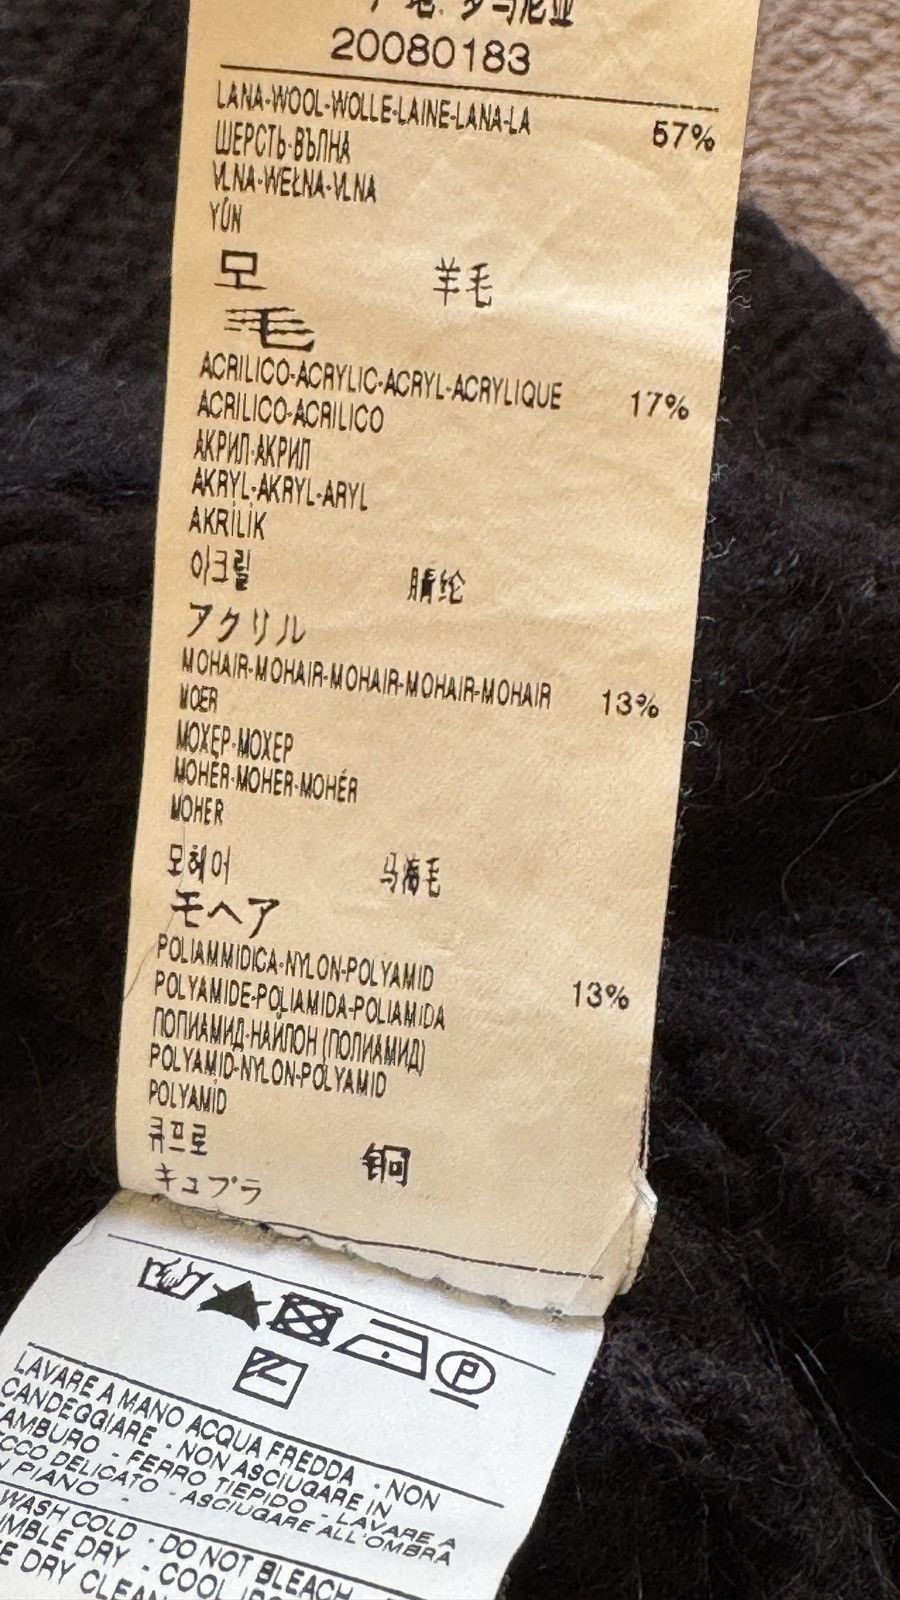 产地: 罗马尼亚
20080183
LANA-WOOL-WOLLE-LAINE-LANA-LA 57%
ШЕРСТЬ-ВЪЛНА
VLNA-WEŁNA-VLNA
YÜN
모 羊毛
毛
ACRILICO-ACRYLIC-ACRYL-ACRYLIQUE 17%
ACRILICO-ACRILICO
АКРИЛ-АКРИЛ
AKRYL-AKRYL-ARYL
AKRİLİK
아크릴 腈纶
アクリル
MOHAIR-MOHAIR-MOHAIR-MOHAIR-MOHAIR 13%
MOER
МОХЕР-МОХЕР
MOHÉR-MOHER-MOHÉR
MOHER
모헤어 马海毛
モヘア
POLIAMMIDICA-NYLON-POLYAMID 13%
POLYAMIDE-POLIAMIDA-POLIAMIDA
ПОЛИАМИД-НАЙЛОН (ПОЛИАМИД)
POLYAMID-NYLON-POLYAMID
POLYAMİD
큐프로 铜
キュプラ
P
LAVARE A MANO ACQUA FREDDA - NON
CANDEGGIARE - NON ASCIUGARE IN
TAMBURO - FERRO TIEPIDO - LAVARE A
ECCO DELICATO - ASCIUGARE ALL'OMBRA
N PIANO -
WASH COLD - DO NOT BLEACH
UMBLE DRY - COOL
E DRY CLEAN